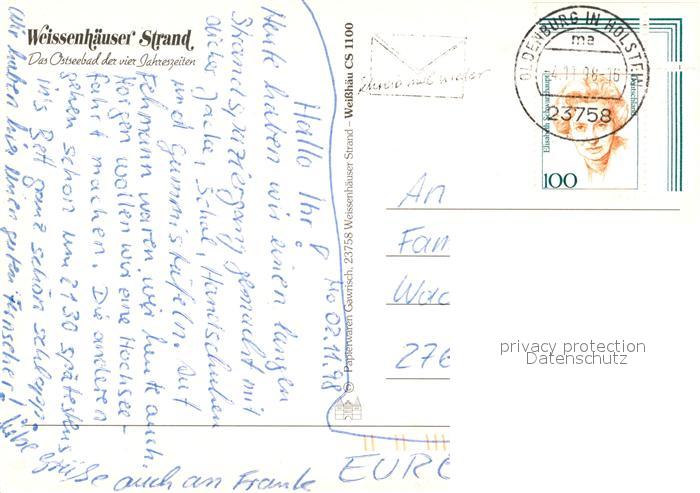 Weissenhäuser Strand
Das Ostseebad der vier Jahreszeiten
Mo 02.11.98
Hallo Ihr!
Heute haben wir einen langen
Strandspaziergang gemacht mit
dicke Jacke, Schal, Handschuhen
und Gummistiefeln. Auf
Fehmann waren wir heute auch.
Morgen wollen wir eine Hochsee-
fahrt machen. Die anderen
gehen schon um 21 30 spätestens
ins Bett ganz schön schlapp
Wir haben hier einen guten
Liebe Grüße auch an Frank
© Papierwaren Gawrisch, 23758 Weissenhäuser Strand - Weißhäu CS 1100
Schreib mal wieder
OLDENBURG IN HOLSTEIN
ma
23758
Elisabeth Schwarzhaupt
Deutschland
100
An
Fam
276
EURO
privacy protection
Datenschutz